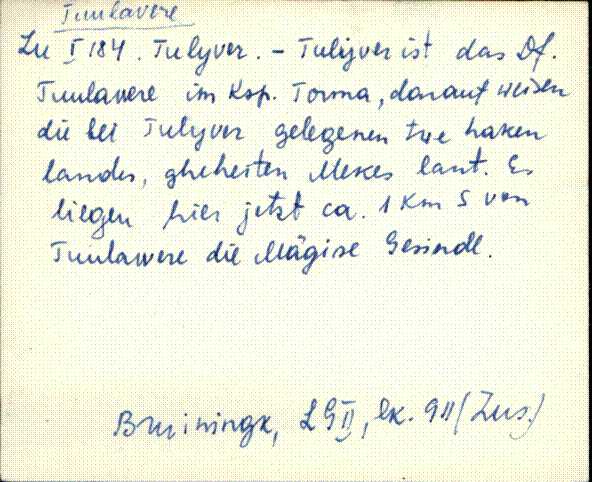 Tuulavere
Zu I 184. Tulyver. – Tulyver ist das Df.
Tuulavere im Ksp. Torma, darauf weisen
die bei Tulyver gelegenen twe haken
landes, gheheiten Mekes lant. Es
liegen hier jetzt ca. 1 km S von
Tuulawere die Mägise Gesinde.
Bruiningk, LG II, lk. 911 (Zus.)